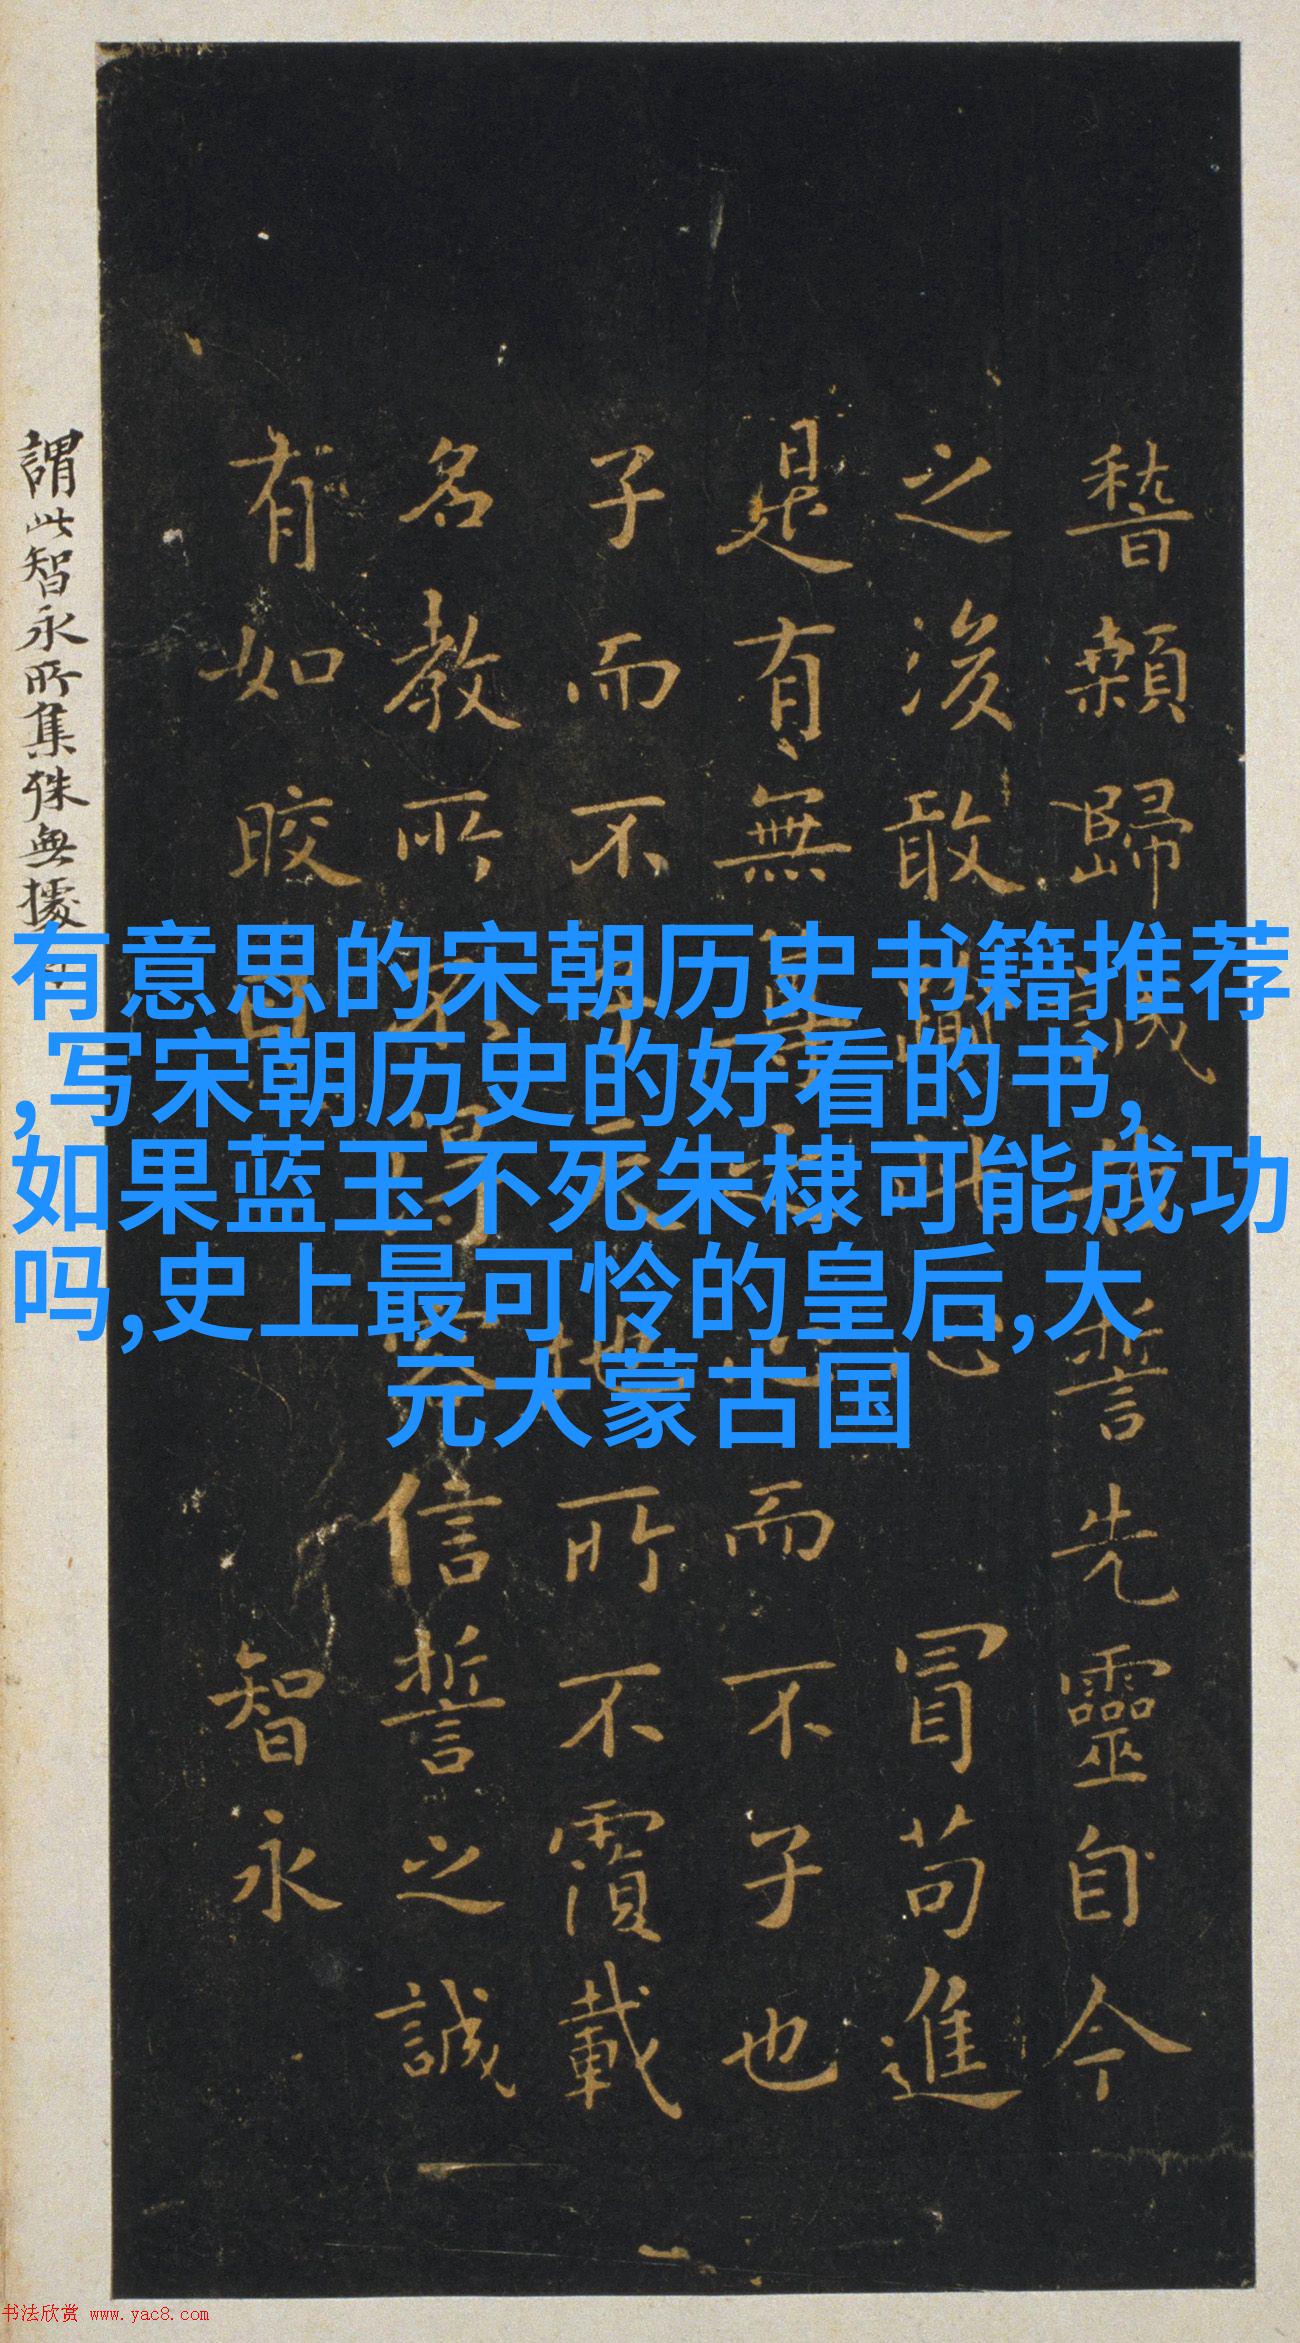 稽顙歸誠告誓先靈自今
之後敢渝此心冒苟進
是有無尊之心而不子也
子而不子天地所不覆載
名教所不得容信誓之誠
有如皎日 智永
謂此智永所集殊無據
有意思的宋朝历史书籍推荐
,写宋朝历史的好看的书,
如果蓝玉不死朱棣可能成功
吗,史上最可怜的皇后,大
元大蒙古国
书法欣赏 www.yac8.com